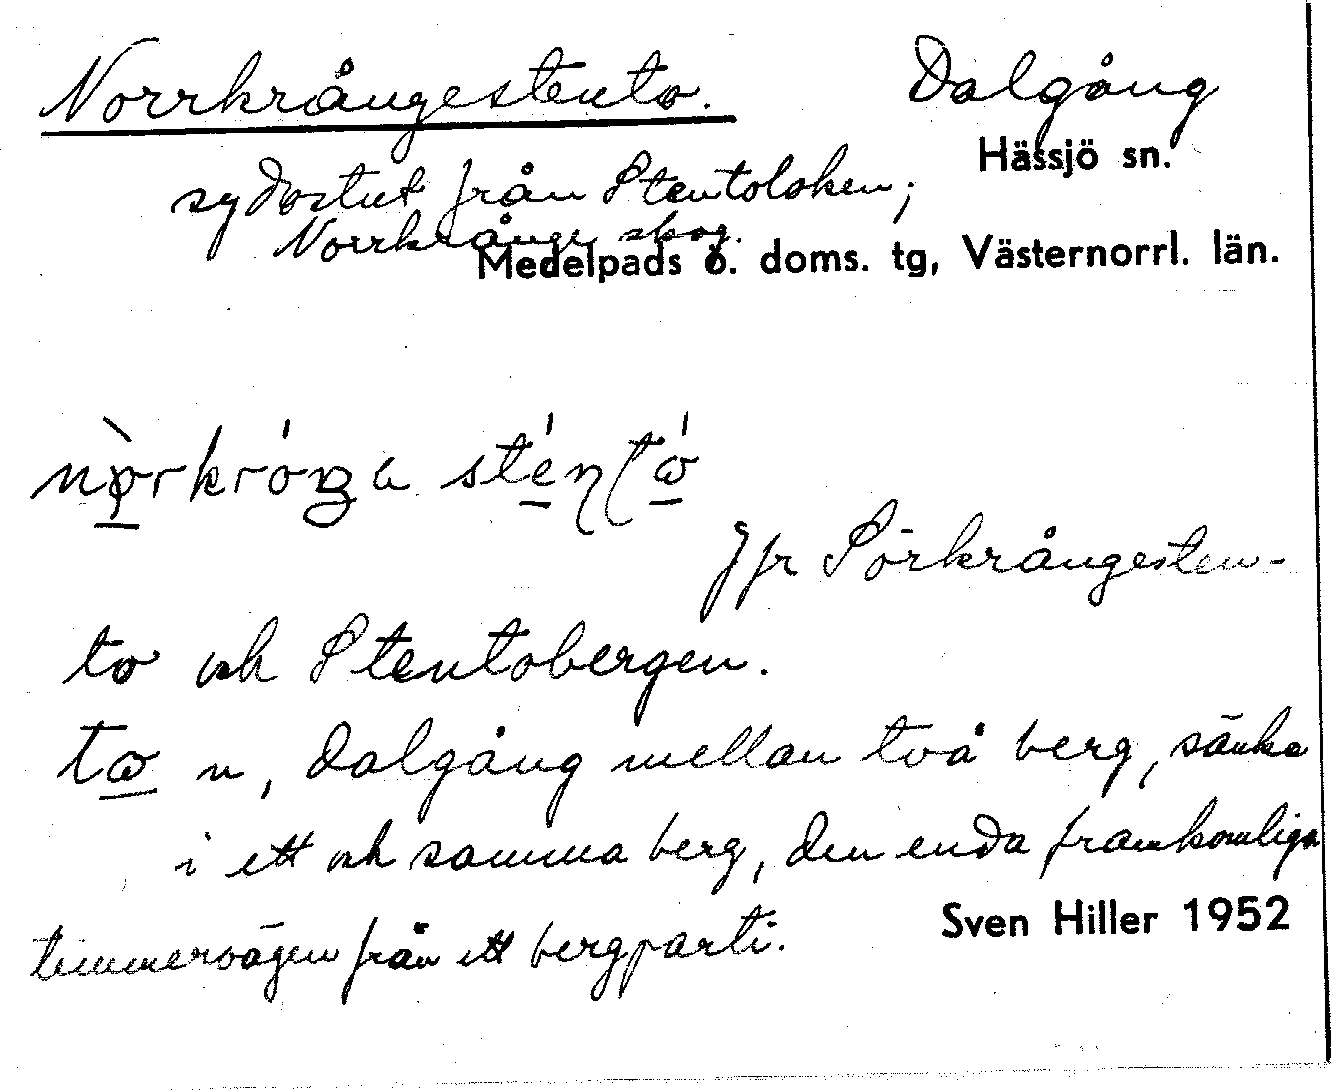 Norrkrångestento. Dalgång
Hässjö sn.
sydostut från Stentoloken;
Norrkrånge skog.
Medelpads ö. doms. tg, Västernorrl. län.
Jfr Sörkrångesten-
to och Stentobergen.
to n, dalgång mellan två berg, sänka
i ett och samma berg, den enda framkomliga
timmervägen från ett bergparti.
Sven Hiller 1952